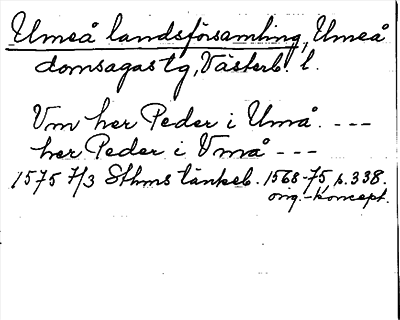 Umeå landsförsamling, Umeå
domsagas tg, Västerb. l.
Vm her Peder i Umå. ---
her Peder i Vmå ---
1575 7/3 Sthms tänkeb. 1568-75, s. 338.
orig.-koncept.